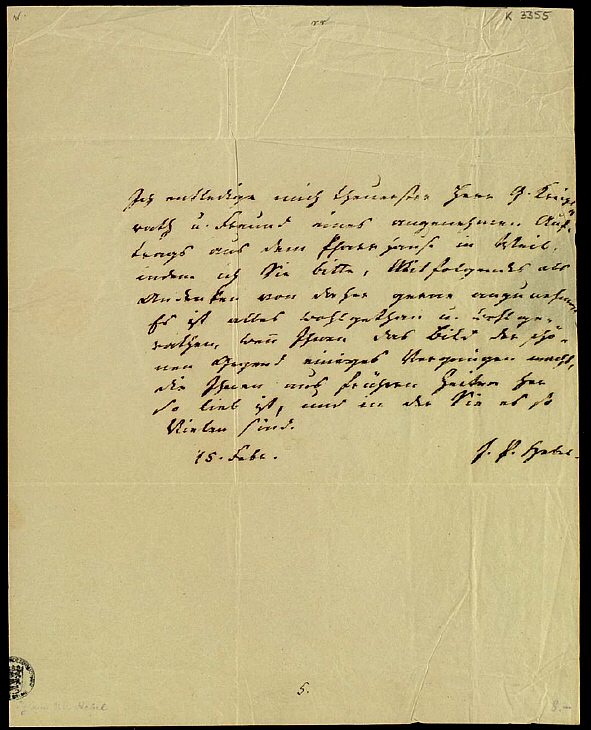 K 3355
Ich entledige mich theuerster Herr G. Kriegs
rath u. Freund eines angenehmen Auf-
trags aus dem Pfarrhause in Weil,
indem ich Sie bitte, Mitfolgendes als
Andenken von daher gerne anzunehmen
Es ist alles wohlgethan u. wohlge-
rathen, wenn Ihnen das Bild der schö-
nen Gegend einiges Vergnügen macht,
die Ihnen aus frühern Zeiten her
so lieb ist, und in der Sie es so
Vielen sind.
15. Febr.
J. P. Hebel.
5.
Hebel
8.-